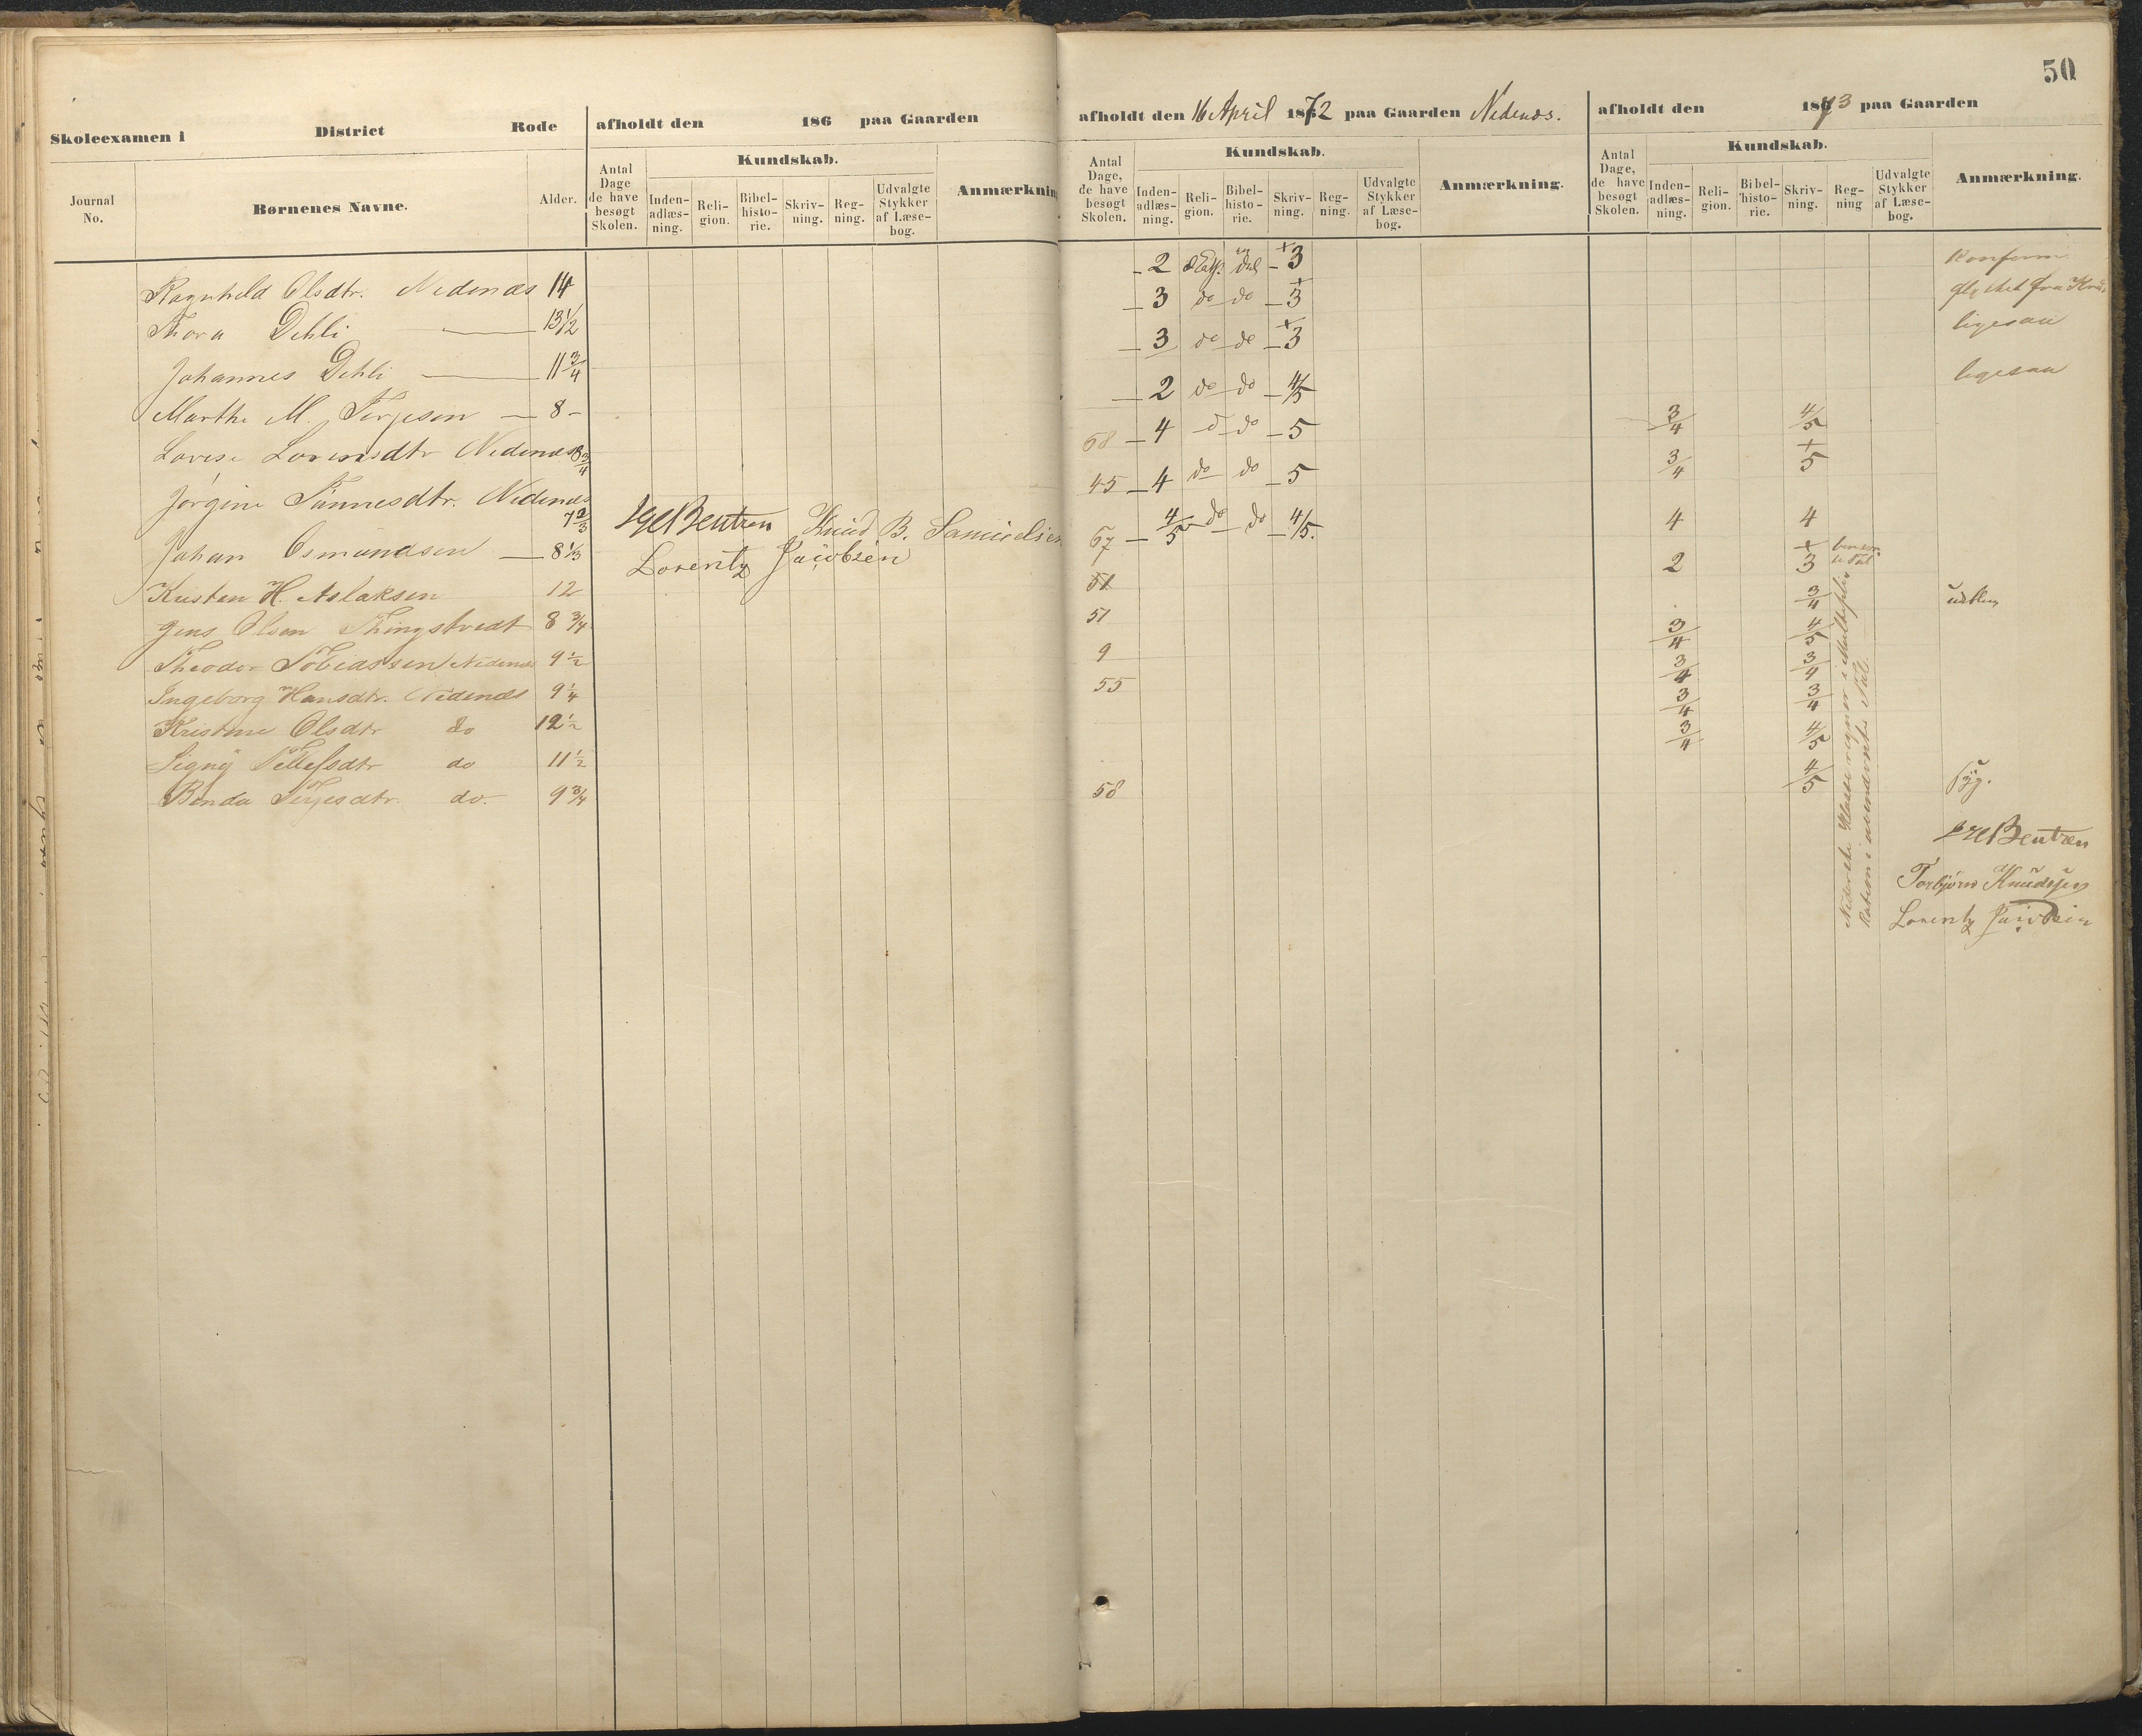 50
Skoleexamen i District Rode afholdt den 186 paa Gaarden
afholdt den 16 April 1872 paa Gaarden Nedenæs.
afholdt den 1873 paa Gaarden
Journal No. Børnenes Navne. Alder. Antal Dage de have besøgt Skolen. Kundskab. Inden-adlæs-ning. Reli-gion. Bibel-histo-rie. Skriv-ning. Reg-ning. Udvalgte Stykker af Læse-bog. Anmærkning
Antal Dage, de have besøgt Skolen. Kundskab. Inden-adlæs-ning. Reli-gion. Bibel-histo-rie. Skriv-ning. Reg-ning. Udvalgte Stykker af Læse-bog. Anmærkning.
Antal Dage, de have besøgt Skolen. Kundskab. Inden-adlæs-ning. Reli-gion. Bibel-histo-rie. Skriv-ning. Reg-ning Udvalgte Stykker af Læse-bog. Anmærkning.
Ragnhild Olsdtr. Nedenæs 14 2 3 Konfirm
Thora Dehli 13 1/2 3 do do 3 flyttet fra
Johannes Dehli 11 3/4 3 do do 3 ligesaa
Marthe M. Terjesen 8 2 do do 4/5 ligesaa
Lovise Lorensdtr Nedenæs 8 3/4 68 4 do 5 3/4 4/5
Jørgine Tønnesdtr. Nedenæs 7 2/3 45 4 do do 5 3/4 5
Johan Osmundsen 8 1/3 67 4/5 do do 4/5. 4 4
Kristen H. Aslaksen 12 51 2 3
Jens Olsen Thingstvedt 8 3/4 51 3/4
Theodor Tobiassen Nedenæs 9 1/2 9 3/4 4/5
Ingeborg Hansdtr. Nedenæs 9 1/4 55 3/4 3/4
Kristine Olsdtr do 12 1/2 3/4 3/4
Signy Tellefsdtr do 11 1/2 3/4 4/5
Benda Terjesdtr. do. 9 3/4 58 4/5 syg.
Bentzen Knud B. Samuelsen
Lorentz Jacobsen
Bentzen
Torbjørn Knudsen
Lorentz Jacobsen